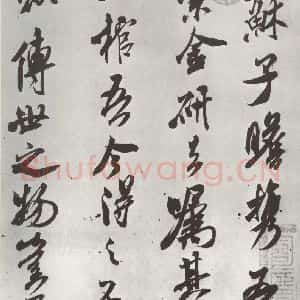 蘇子瞻携吾
紫金研去嘱其
棺吾今得之不
傳世之物
Shufawang.CN